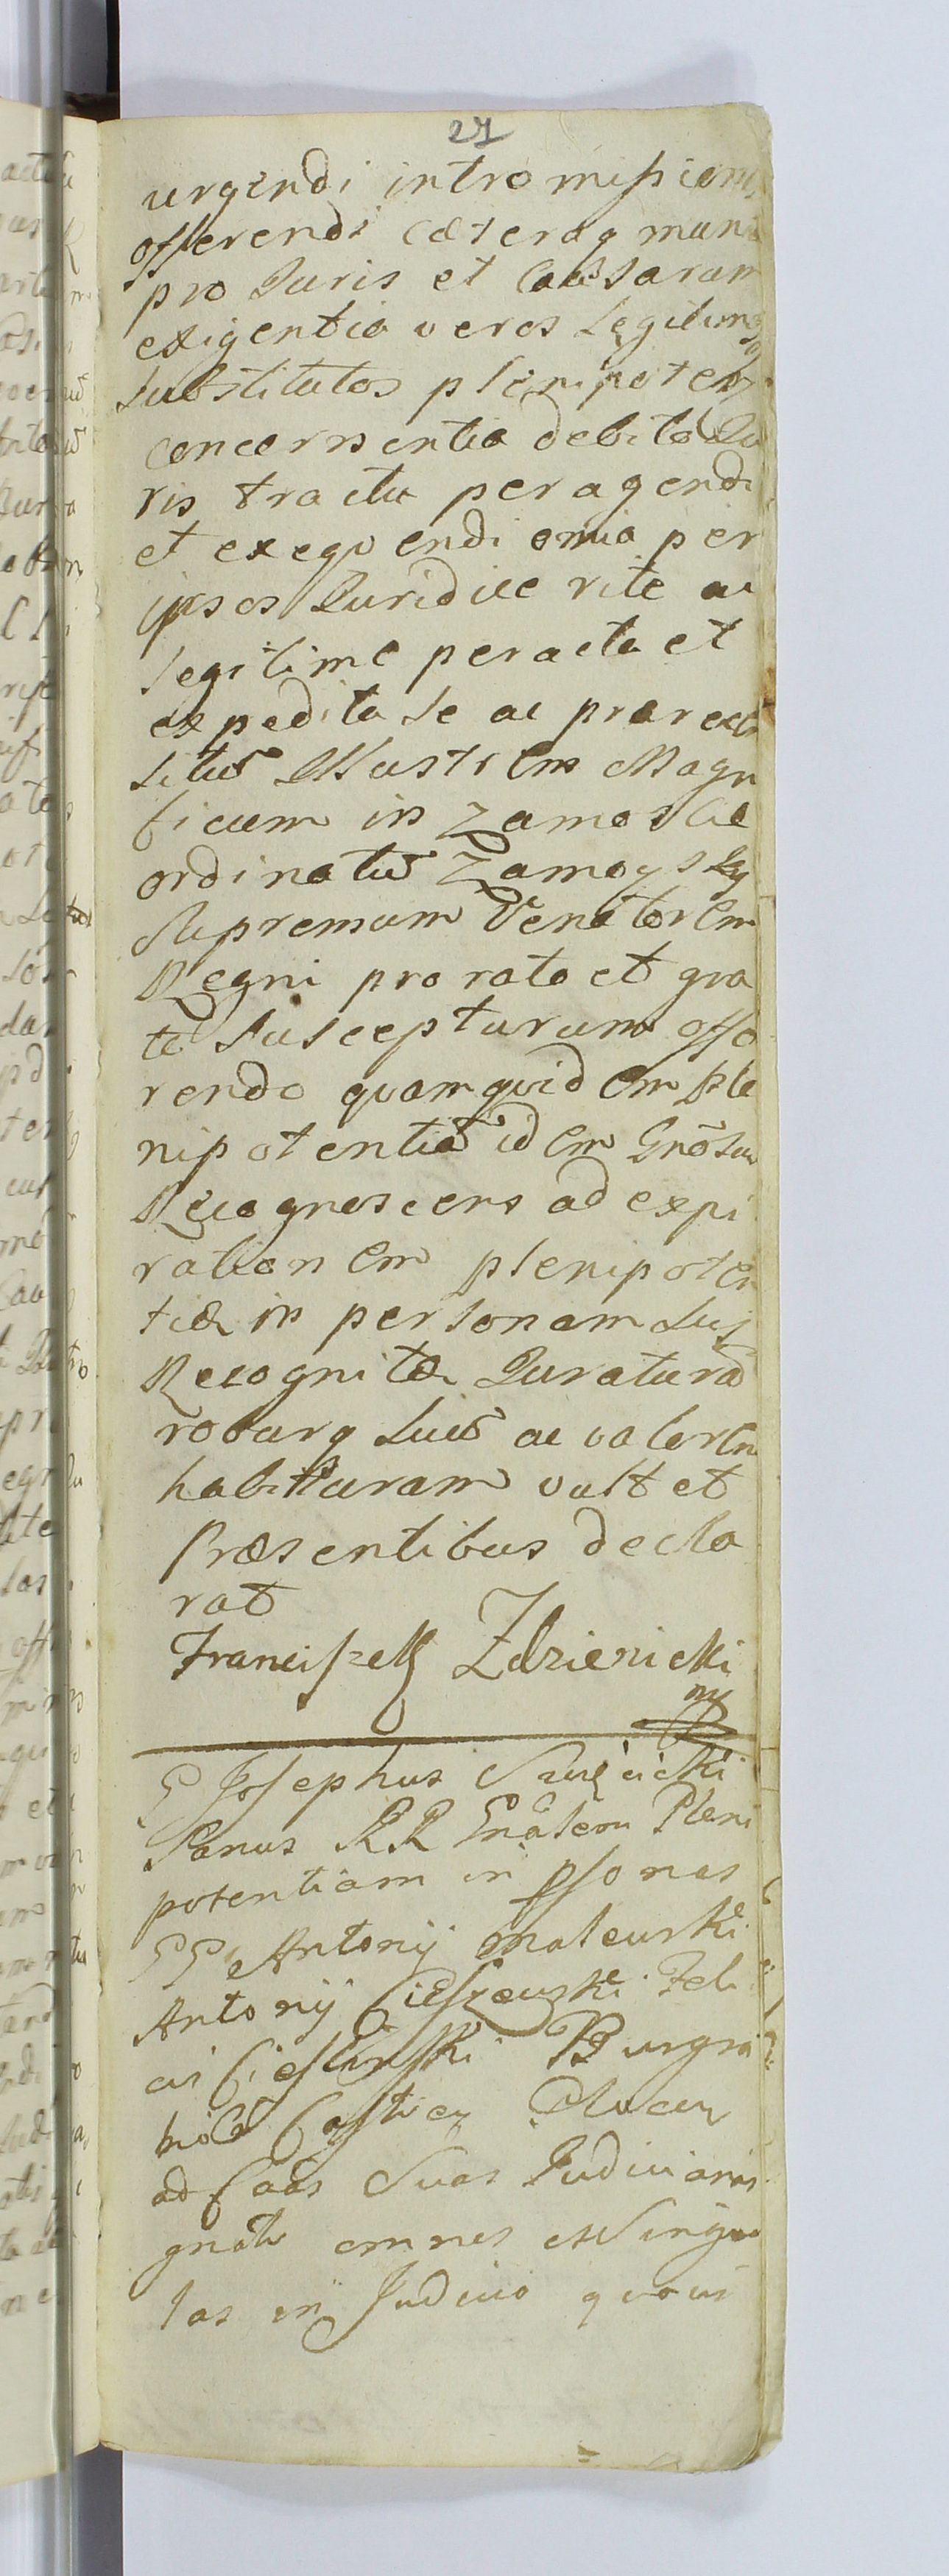 27
urgendi intromissiones
offerendi cæteraq munia
pro Juris et Causarum
exigentia veros Legitimos
Substitutos plenipoten
concernentia debito Ju
ris tractu peragendi
et exequendi omia per
ipsos Juridice rite ac
legitime peracta et
expedita se ac præ
situ Illustrem Magn
ficum in Zamoscie
ordinatū Zamoysky
Supremum Venatorem
Regni pro rato et gra
to Suscepturum offe
rendo quamquidem ple
nipotentiā idem Gnōsus
Recognoscens ad expi
rationem plenipoten
tiæ in personam Sui
Recognitæ Juraturā
roburq suū ac valorem
habituram vult et
Præsentibus decla
rat
Franciszek Zdzienicki
mp
G Josephus
Panus RR Gnālem Pleni
potentiam in psonas
GG Antonij Mateuski
Antonij Cieszewski Feli
cis Ciesliński Burgra
bioR Castren
ad Caās Suas Judiciarias
gnāli omnes et Singu
las in Judicio quovis